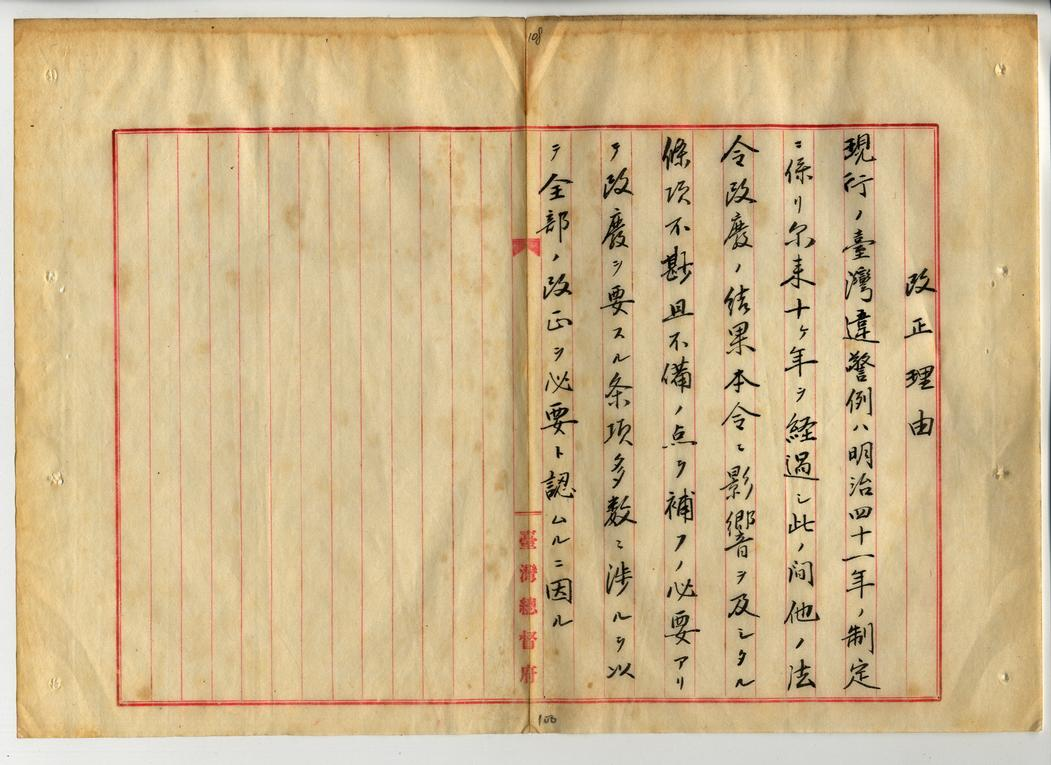 108
改正理由
現行ノ臺灣違警例ハ明治四十一年ノ制定
ニ係リ尓来十ヶ年ヲ経過シ此ノ间他ノ法
令改廢ノ結果本令ニ影響ヲ及シタル
條項不尠且不備ノ点ヲ補フノ必要アリ
テ改廢ヲ要スル条項多数ニ渉ルヲ以
テ全部ノ改正ヲ必要ト認ムルニ因ル
臺灣總督府